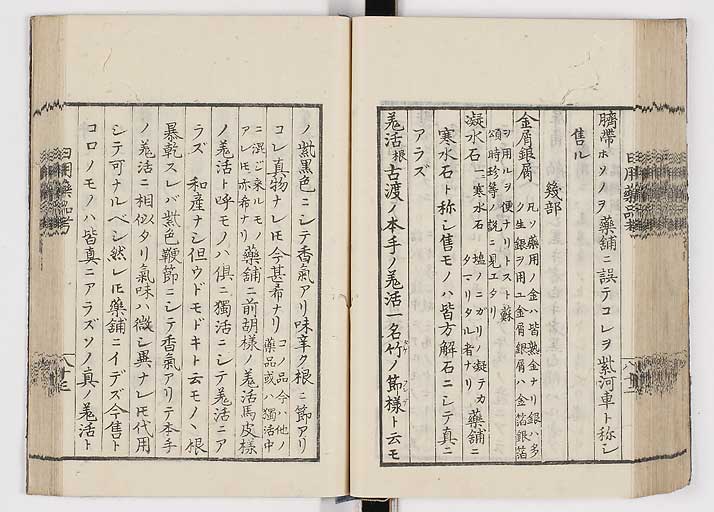 臍帶 ホソノヲ 藥舗ニ誤テコレヲ紫河車ト称シ
售ル
幾部
金屑銀屑 凡ソ藥用ノ金ハ皆熟金ナリ銀ハ多
ク生銀ヲ用ユ金屑銀屑ハ金箔銀箔
ヲ用ルヲ便リトスト蘇
頌時珍等ノ説ニ見エタリ
凝水石 一名寒水石 塩ノニガリノ凝テカ
タマリタル者ナリ 藥舗ニ
寒水石ト称シ售モノハ皆方解石ニシテ真ニ
アラズ
羗活 根 古渡ノ本手ノ羗活一名竹ノ節様ト云モ
ノ紫黒色ニシテ香氣アリ味辛ク根ニ節アリ
コレ真物ナレ𪜈今甚希ナリ コノ品今ハ他ノ
藥品或ハ獨活中
ニ選ビ来ルモノ
アレ𪜈亦希ナリ 藥舗ニ前胡様ノ羗活馬皮様
ノ羗活ト呼モノハ倶ニ獨活ニシテ羗活ニア
ラズ 和産ナシ但ウドモドキト云モノヽ根
暴乾スレバ紫色鞭節ニシテ香氣アリテ本手
ノ羗活ニ相似タリ氣味ハ微シ異ナレ𪜈代用
シテ可ナルベシ然レ𪜈藥舗ニイデズ今售ト
コロノモノハ皆真ニアラズソノ真ノ羗活ト
日用藥品考